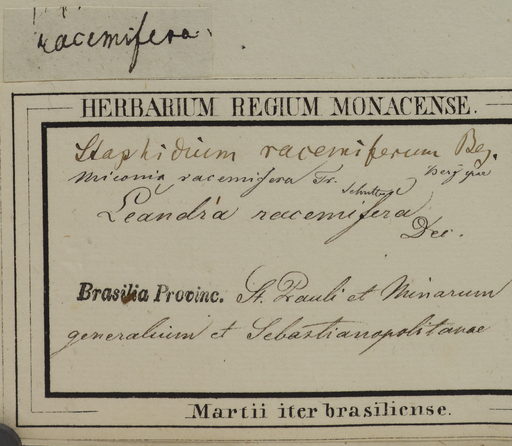 racemifera.
HERBARIUM REGIUM MONACENSE.
Staphidium racemiferum
Miconia racemifera Tr.
Leandra racemifera
Dec.
Brasilia Provinc. St. Pauli et Minarum
generalium et Sebastianopolitanae
Martii iter brasiliense.